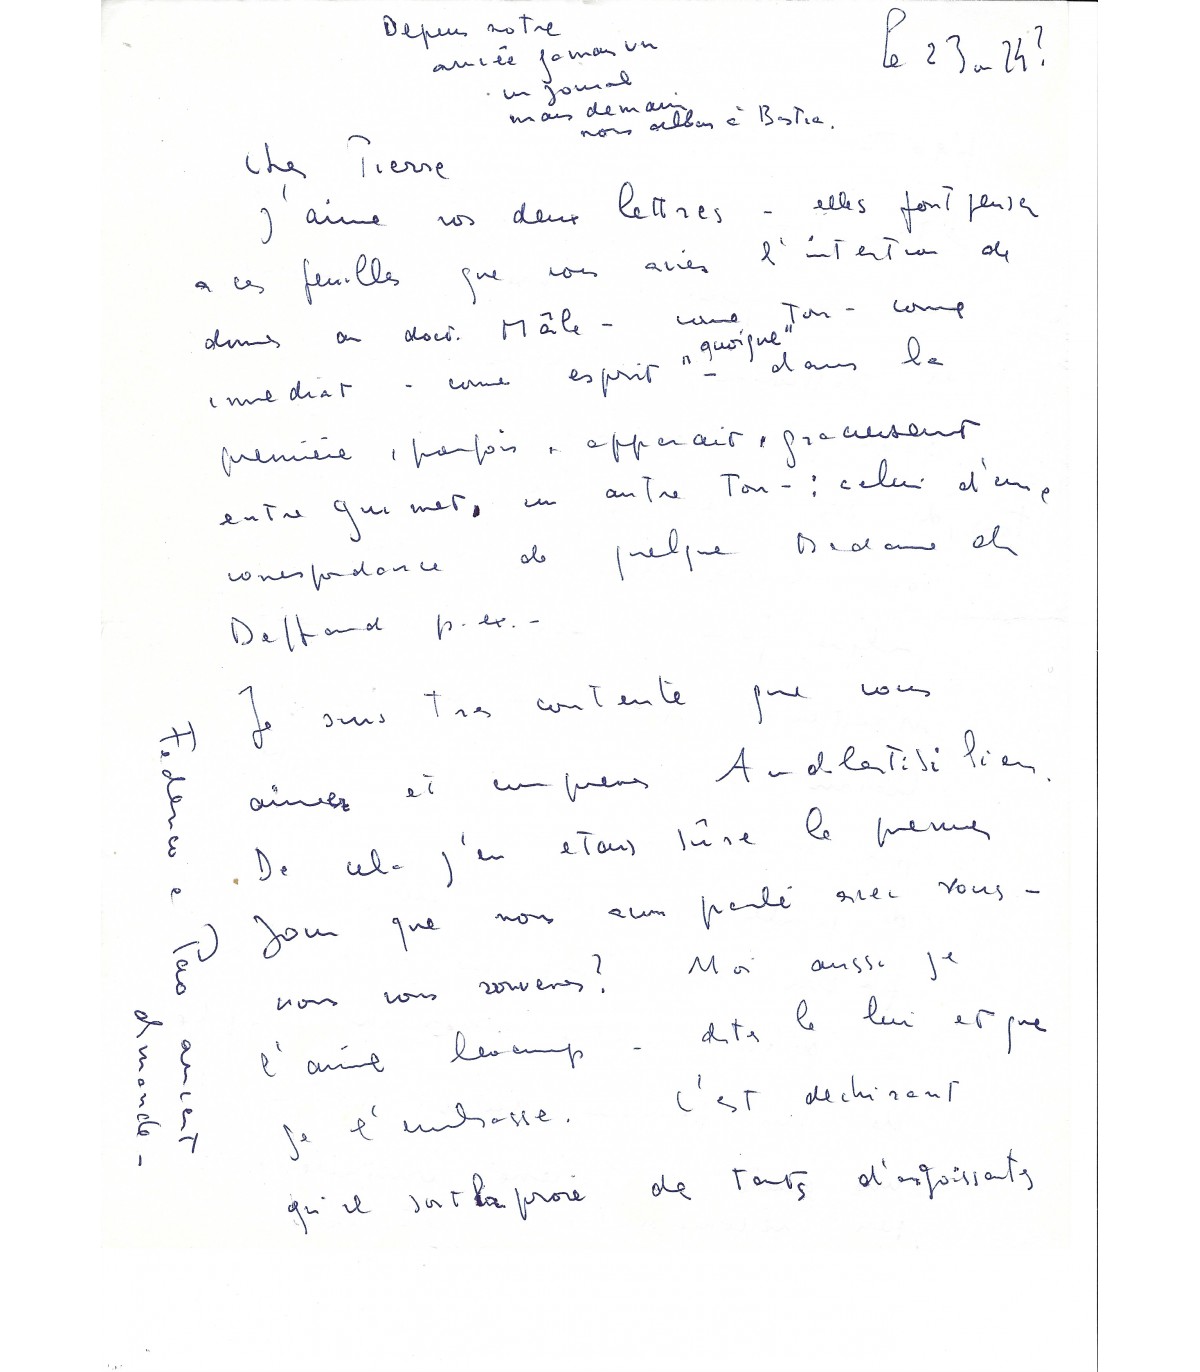 Depuis notre
arrivée jamais vu
un journal
mais demain
nous allons à Bastia.
le 23 ou 24?
Cher Pierre
J'aime vos deux lettres - elles font penser
a ces feuilles que vous aviez l'intention de
donner au doct. Mâle - comme ton - comme
immediat - comme esprit - "quoique" dans la
première, parfois, apparait, gracieusement
entre guimet, un autre ton - : celui d'une
correspondance de quelque Madame du
Deffand p. ex. -
Je suis tres contente que vous
aimez et comprenez si bien.
De cela j'en etais sûre le premier
Jour que nous avons parlé avec vous -
vous vous souvenez? Moi aussi je
l'aime beaucoup - dites le lui et que
je l'embrasse. C'est dechirant
qu'il soit la proie de tants d'angoissants
Federico e